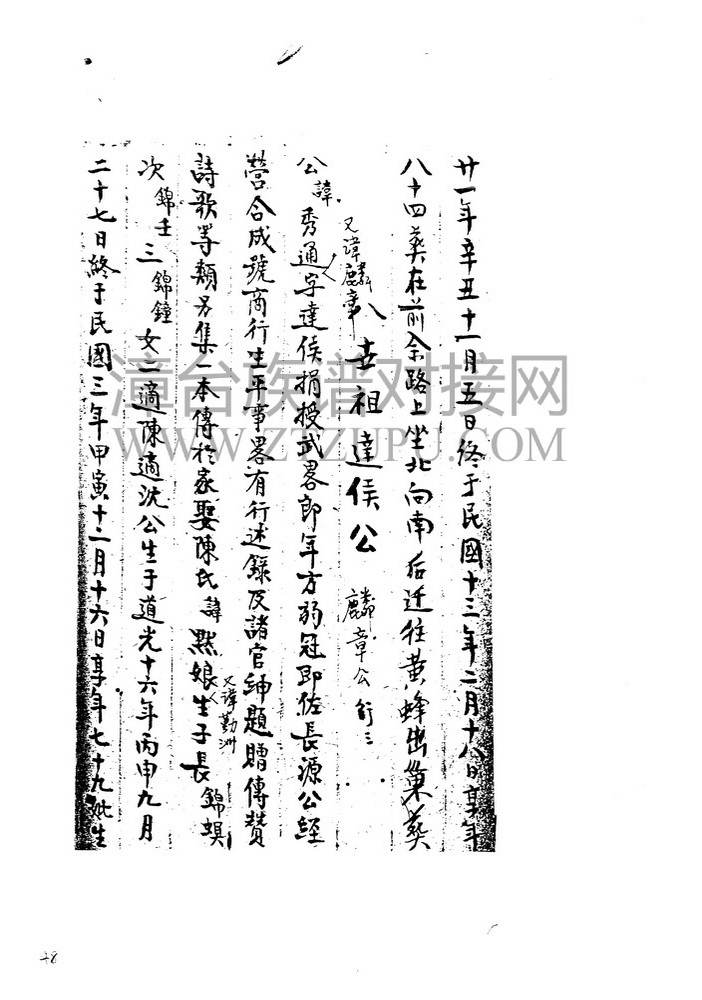 廿一年辛丑十一月五日終于民國十三年二月十八日享年
八十四葬在前余路上坐北向南后迁往黄蜂出巢葬
八世祖達侯公 麟章公 行三
公諱秀通字達侯捐授武畧郎年方弱冠即佐長源公經
又諱麟章
營合成號商行生平事畧有行述錄及諸官紳題贈傳贊
詩歌等類另集一本傳於家娶陳氏諱黙娘生子長錦螟
又諱勤洲
次錦壬三錦鐘女二適陳適沈公生于道光十六年丙申九月
二十七日終于民國三年甲寅十二月十六日享年七十九妣生
漳台族谱对接网
WWW.ZTZUPU.COM
48